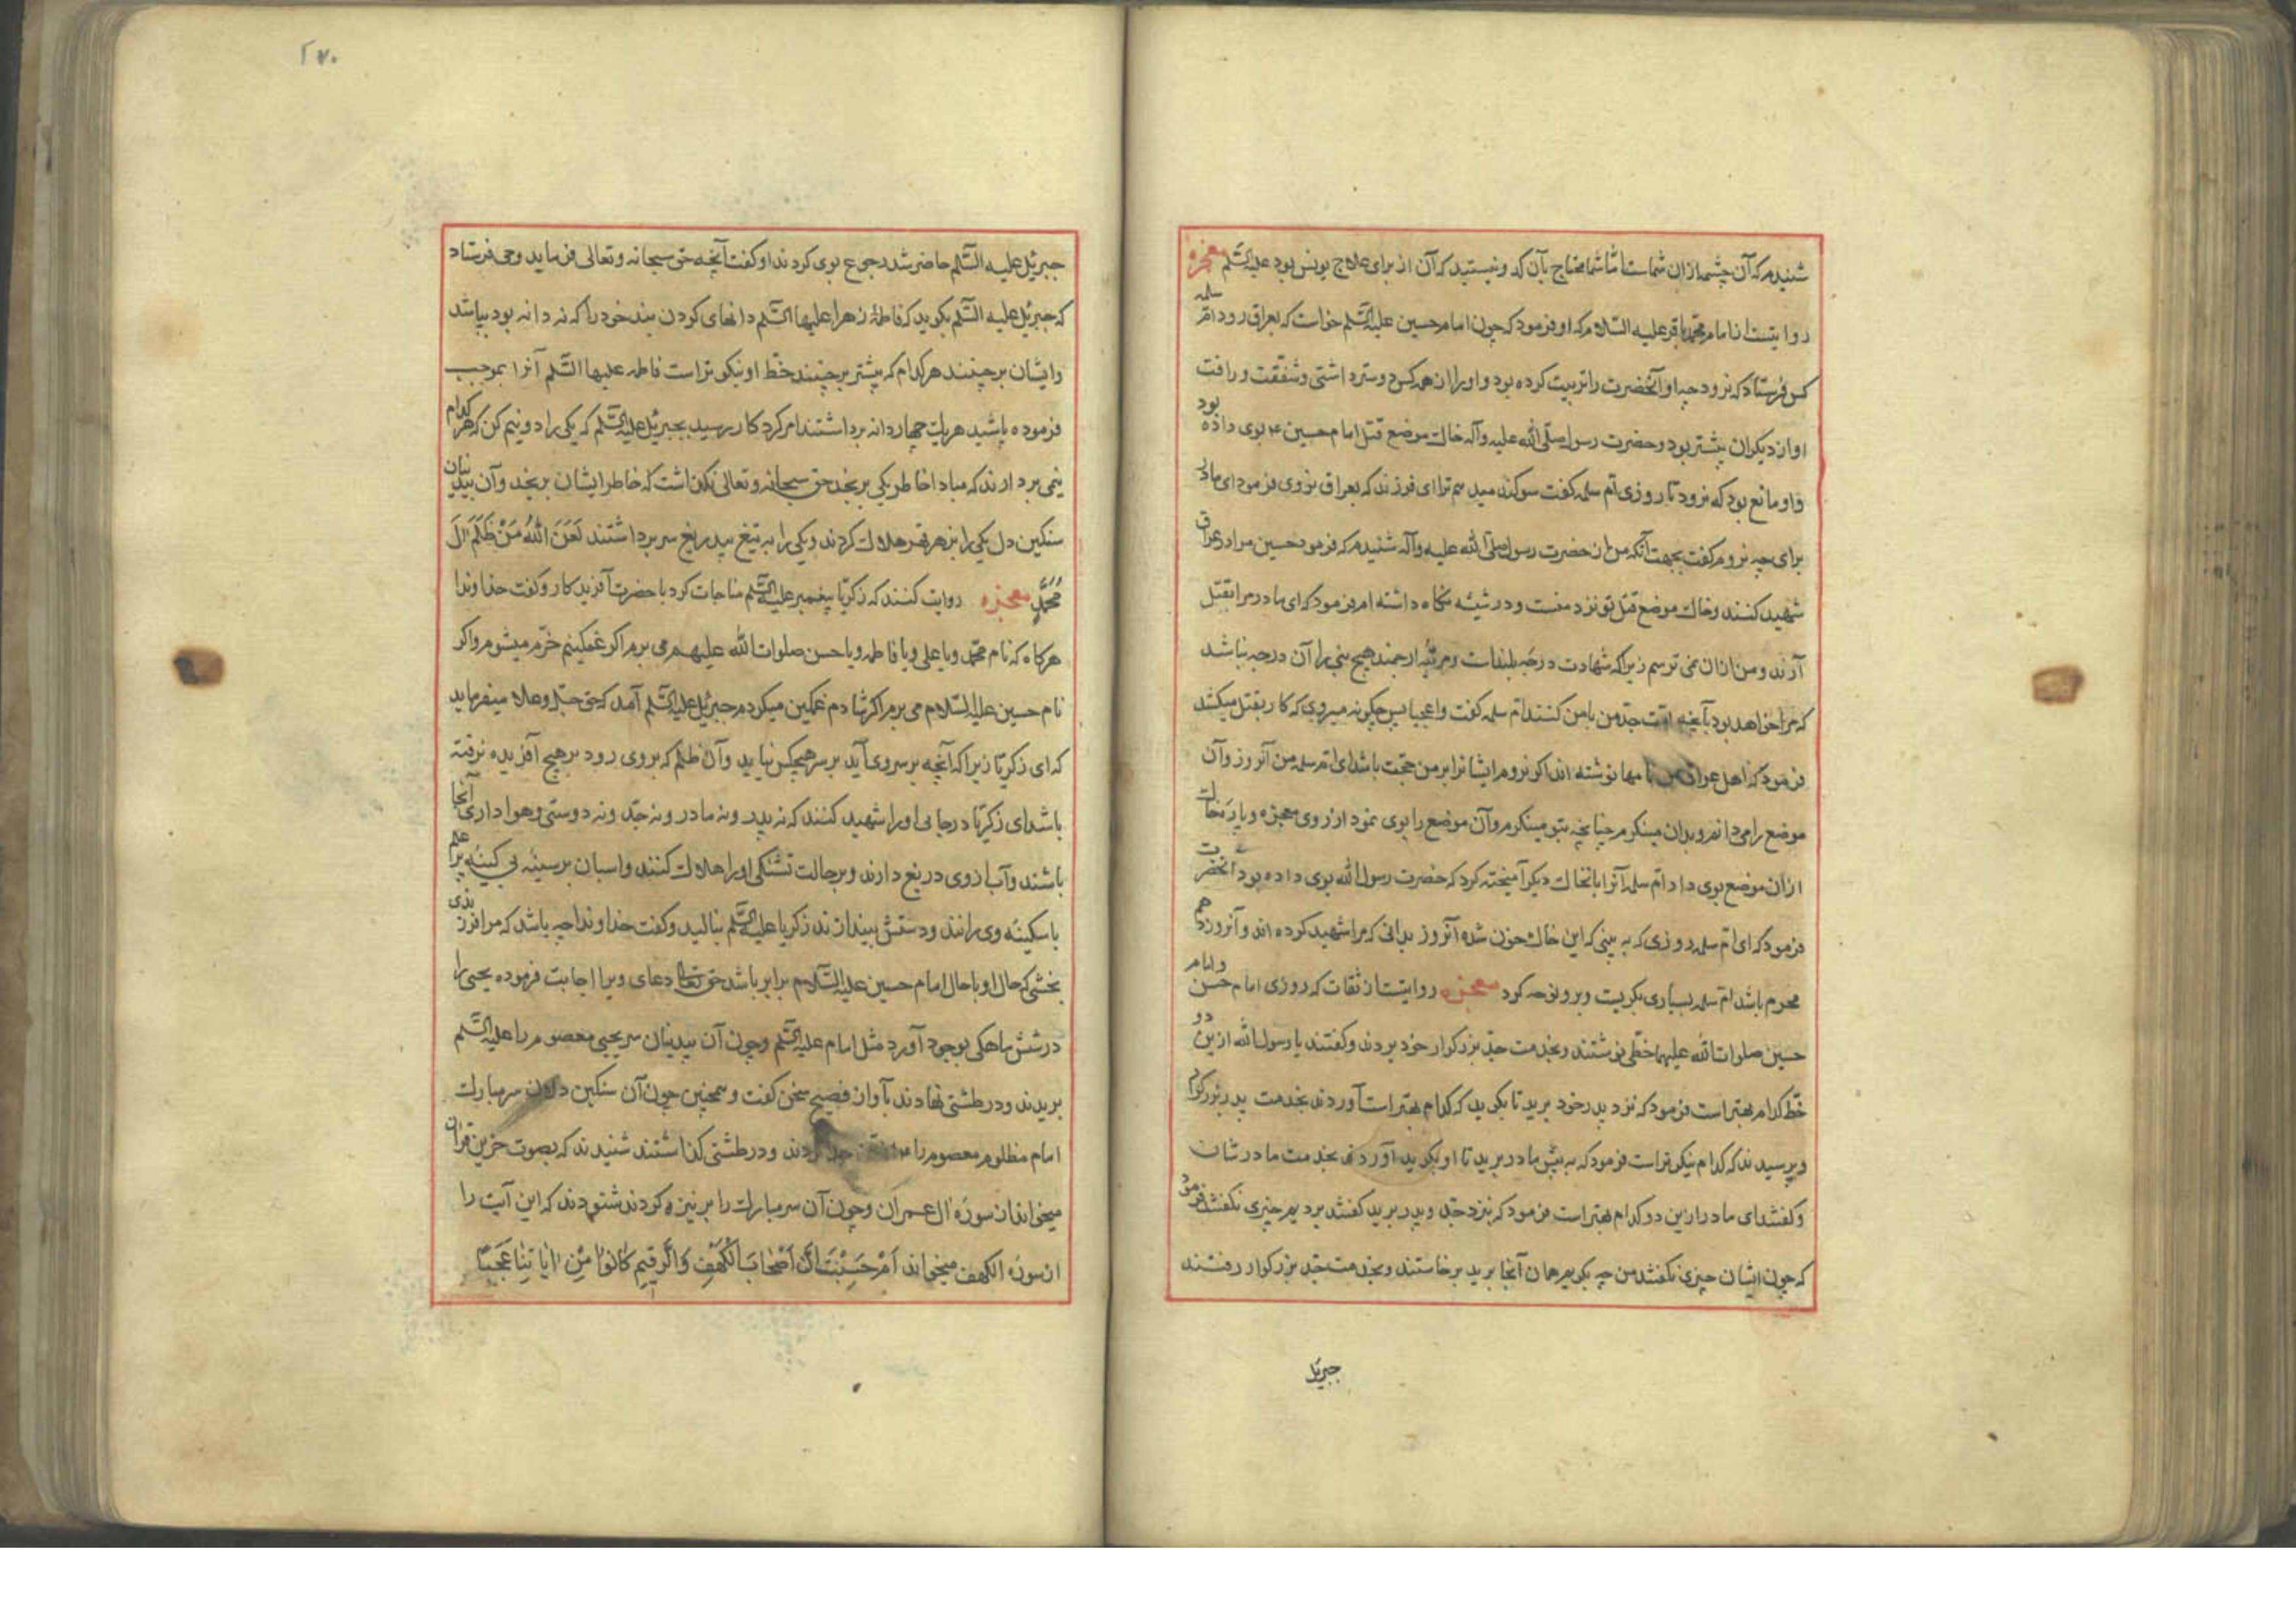 شنیدم که آن چشمه ازان شماست امّا شما محتاج بآن کدو نیستید که آن از برای علاج یونس بود علیه السّلم معجزه
روایتست از امام محمّد باقر علیه السّلام که او فرمود که چون امام حسین علیه السّلم خواست که بعراق رود امّ سلمه
کس فرستاد که نرود چه او آنحضرت را تربیت کرده بود و او را از همه کس دوستر داشتی و شفقت و رافت
او از دیکران بیشتر بود و حضرت رسول صلّی الله علیه وآله خاک موضع قتل امام حسین ع بوی داده بود
و او مانع بود که نرود تا روزی امّ سلمه کفت سوکند میدهم ترا ای فرزند که بعراق نروی فرمود ای مادر
برای چه نروم کفت بجهت آنکه من از حضرت رسول صلی الله علیه وآله شنیدم که فرمود حسین مرا در عراق
شهید کنند و خاک موضع قتل تو نزد منست و در شیشه نکاه داشته ام فرمود که ای مادر مرا بقتل
آرند و من ازان نمی ترسم زیرا که شهادت درجه بلنداست و مرتبه ارجمند هیچ نبی را آن درجه نباشد
که مرا خواهد بود بآنچه امّت جدّ من با من کنند امّ سلمه کفت واعجبا پس چکونه میروی که کار بقتل میکشد
فرمود که اهل عراق بمن نامها نوشته اند اکر نروم ایشانرا بر من حجّت باشد ای امّ سلمه من آنروز و آن
موضع را می دانم و بدان مینکرم چنانچه بتو مینکرم و آن موضع را بوی نمود از روی معجزه و پاره خاک
ازان موضع بوی داد امّ سلمه آنرا با آنخاک دیکر آمیخته کرد که حضرت رسول الله بوی داده بود آنحضرت
فرمود که ای امّ سلمه روزی که به بینی که این خاک خون شده آنروز بدانی که مرا شهید کرده اند و آنروز دهم
محرم باشد امّ سلمه بسیاری بکریست و برو نوحه کرد معجزه روایتست از ثقات که روزی امام حسن و امام
حسین صلوات الله علیهما خطّی نوشتند و بخدمت جدّ بزرکوار خود بردند و کفتند یا رسول الله ازین دو
خطّ کدام بهتراست فرمود که نزد پدر خود برید تا بکوید که کدام بهتر است آوردند بخدمت پدر بزرکوار
و پرسیدند که کدام نیکوتراست فرمود که به پیش مادر برید تا او بکوید آوردند بخدمت مادرشان
و کفتند ای مادر ازین دو کدام بهتراست فرمود که بنزد جدّ و پدر برید کفتند بردیم چیزی نکفتند فرمود
که چون ایشان چیزی نکفتند من چه بکویم همان آنجا برید برخاستند و بخدمت جدّ بزرکوار رفتند
جبرئیل
٢٧٠
جبرئیل علیه السّلم حاضر شد رجوع بوی کردند او کفت آنچه حق سبحانه و تعالی فرماید وحی فرستاد
که جبرئیل علیه السّلم بکوید که فاطمهٔ زهرا علیها السّلم دانهای کردن بند خود را که نه دانه بود بپاشد
و ایشان برچینند هر کدام که بیشتر برچینند خطّ او نیکوتراست فاطمه علیها السّلم آنرا بموجب
فرموده پاشید هر یک چهار دانه برداشتند امر کرد کار رسید بجبرئیل علیه السّلم که یکی را دو نیم کن که هر کدام
نیمی بردارند که مبادا خاطر یکی برنجد حق سبحانه و تعالی نکذاشت که خاطر ایشان برنجد و آن بیدینان
سنکین دل یکی را بزهر قهر هلاک کردند و یکی را به تیغ بیدریغ سر برداشتند لَعَنَ اللهُ مَنْ ظَلَمَ الَ
مُحَمَّدٍ معجزه روایت کنند که زکریّا پیغمبر علیه السّلم مناجات کرد با حضرت آفریدکار و کفت خداوندا
هرکاه که نام محمّد و یا علی و یا فاطمه و یا حسن صلوات الله علیهم می برم اکر غمکینم خرّم میشوم و اکر
نام حسین علیه السّلام می برم اکر شادم غمکین میکردم جبرئیل علیه السّلم آمد که حق جلّ و علا میفرماید
که ای زکریّا زیرا که آنچه بر سر وی آید بر سر هیچکس نیاید و آن ظلم که بر وی رود بر هیچ آفریده نرفته
باشد ای زکریّا در جایی او را شهید کنند که نه پدر و نه مادر و نه جدّ و نه دوستی و هواداری آنجا
باشند و آب از وی دریغ دارند و بر حالت تشنکی او را هلاک کنند و اسبان بر سینهٔ بی کینهٔ پر علم
با سکینه وی رانند و دستش بیندازند زکریا علیه السّلم بنالید و کفت خداوندا چه باشد که مرا فرزندی
بخشی که حال او با حال امام حسین علیه السّلام برابر باشد حق تعالی دعای ویرا اجابت فرموده یحیی را
در شش ماهکی بوجود آورد مثل امام علیه السّلم و چون آن بیدینان سر یحیی معصوم را علیه السّلم
بریدند و در طشتی نهادند بآواز فصیح سخن کفت و همچنین چون آن سنکین دلان سر مبارک
امام مظلوم معصوم را ع از تن جدا کردند و در طشتی کذاشتند شنیدند که بصوت حزین قران
میخواند از سورهٔ ال عمران و چون آن سر مبارک را بر نیزه کردند شنودند که این آیت را
از سورهٔ الکهف میخواند اَمْ حَسِبْتَ اَنَّ اَصْحَابَ الْکَهْفِ وَالرَّقِیمِ کَانُوا مِنْ اٰیَاتِنَا عَجَبًا